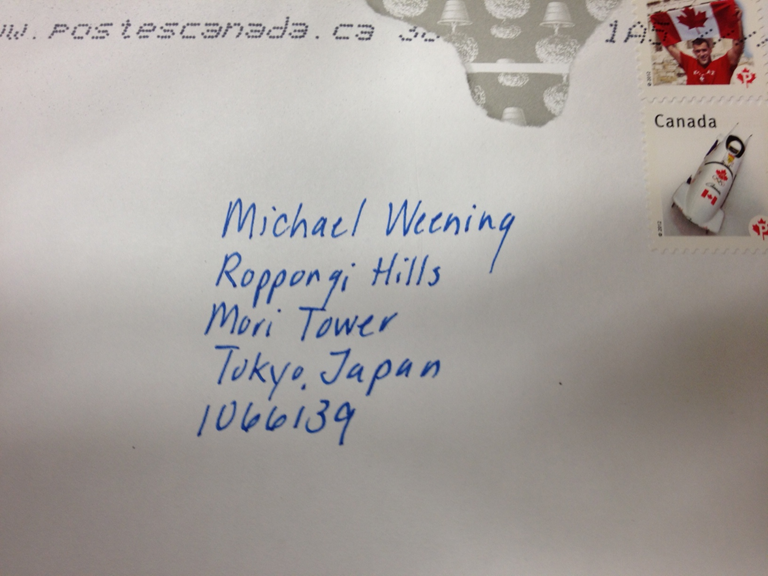 w.postescanada.ca
Canada
Michael Weening
Roppongi Hills
Mori Tower
Tokyo, Japan
1066139